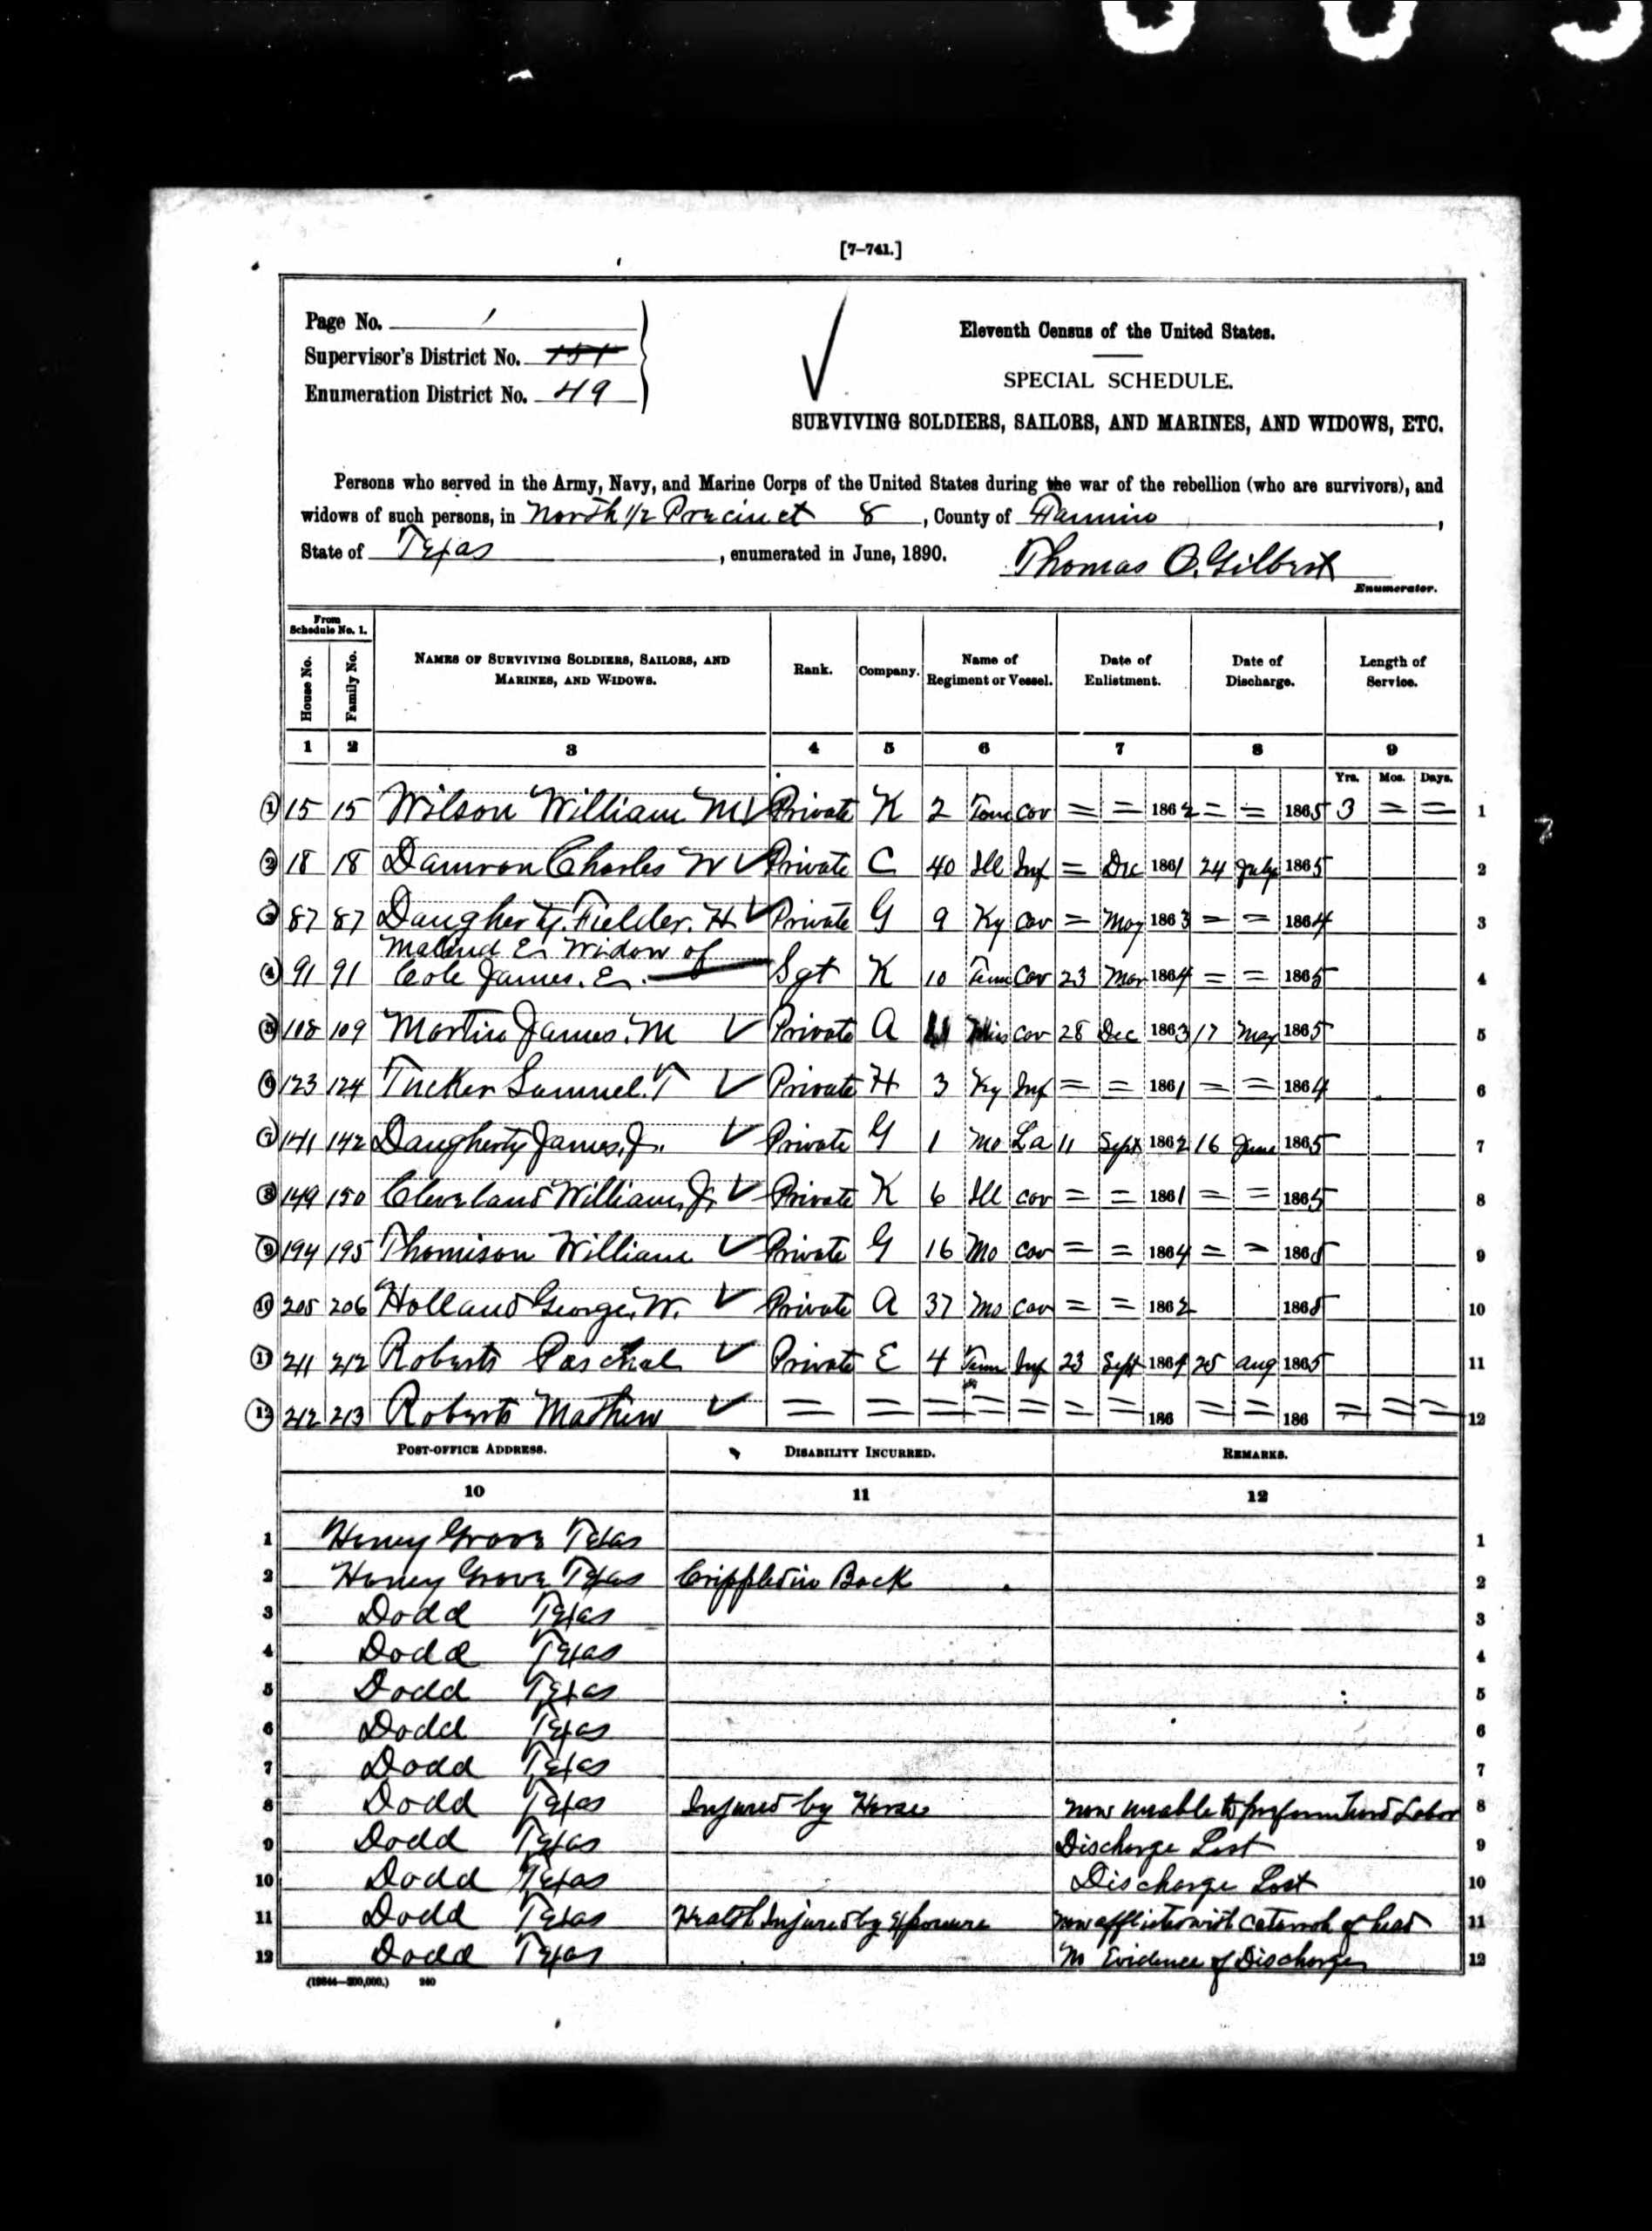 [7-741.]
Page No. 1
Supervisor's District No. 151
Enumeration District No. 49
Eleventh Census of the United States.
SPECIAL SCHEDULE.
SURVIVING SOLDIERS, SAILORS, AND MARINES, AND WIDOWS, ETC.
Persons who served in the Army, Navy, and Marine Corps of the United States during the war of the rebellion (who are survivors), and
widows of such persons, in North 1/2 Precinct 8, County of Fannin,
State of Texas, enumerated in June, 1890. Thomas O. Gilbert
Enumerator.
From Schedule No. 1.
House No. Family No. NAMES OF SURVIVING SOLDIERS, SAILORS, AND MARINES, AND WIDOWS. Rank. Company. Name of Regiment or Vessel. Date of Enlistment. Date of Discharge. Length of Service.
1 2 3 4 5 6 7 8 9
Yrs. Mos. Days.
1 15 15 Wilson William M Private K 2 Tenn Cav = = 1862 = = 1865 3 = = 1
2 18 18 Damron Charles W Private C 40 Ill Inf = Dec 1861 24 July 1865 2
3 87 87 Daugherty. Fielder. H Private G 9 Ky Cav = May 1863 = = 1864 3
Malind E. Widow of
4 91 91 Cole James. E. Sgt K 10 Tenn Cav 23 Mar 1864 = = 1865 4
5 108 109 Martin James. M Private A Cav 28 Dec 1863 17 May 1865 5
6 123 124 Tucker Samuel. T Private H 3 Ky Inf = = 1861 = = 1864 6
7 141 142 Daugherty James. J. Private G 1 Mo La 11 Sept 1862 16 June 1865 7
8 149 150 Cleveland William. J. Private K 6 Ill Cav = = 1861 = = 1865 8
9 194 195 Thomison William Private G 16 Mo Cav = = 1864 = = 1865 9
10 205 206 Holland George. W. Private A 37 Mo Cav = = 1862 1865 10
11 211 212 Roberts Paschal Private E 4 Tenn Inf 23 Sept 1864 25 Aug 1865 11
12 212 213 Roberts Mathew = = = = = = = 186 = = 186 = = = 12
POST-OFFICE ADDRESS. DISABILITY INCURRED. REMARKS.
10 11 12
1 Honey Grove Texas 1
2 Honey Grove Texas Crippled in Back 2
3 Dodd Texas 3
4 Dodd Texas 4
5 Dodd Texas 5
6 Dodd Texas 6
7 Dodd Texas 7
8 Dodd Texas Injured by Horse now unable to preform hard Labor 8
9 Dodd Texas Discharge Lost 9
10 Dodd Texas Discharge Lost 10
11 Dodd Texas Health Injured by Exposure now afflicted with catarrah of head 11
12 Dodd Texas No Evidence of Discharge 12